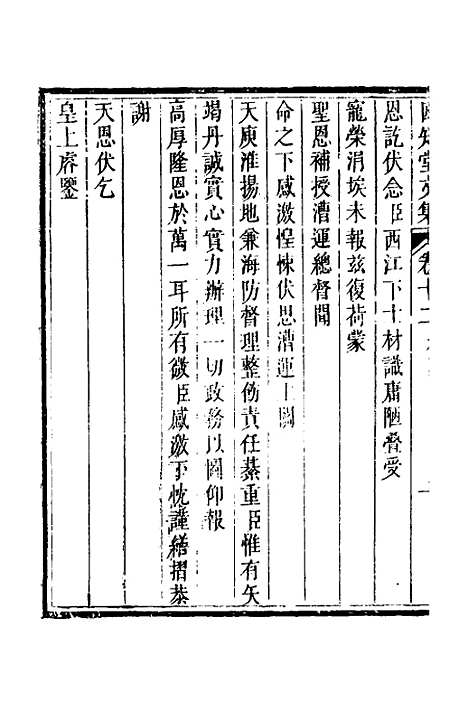 恩訖伏念臣西江下士材識庸陋叠受
寵榮涓埃未報兹復荷蒙
聖恩補授漕運總督聞
命之下感激惶悚伏思漕運上關
天庾淮揚地兼海防督理整飭責任綦重臣惟有矢
竭丹誠實心實力辦理一切政務以圖仰報
高厚隆恩於萬一耳所有微臣感激下忱謹繕摺恭
謝
天恩伏乞
皇上睿鑒